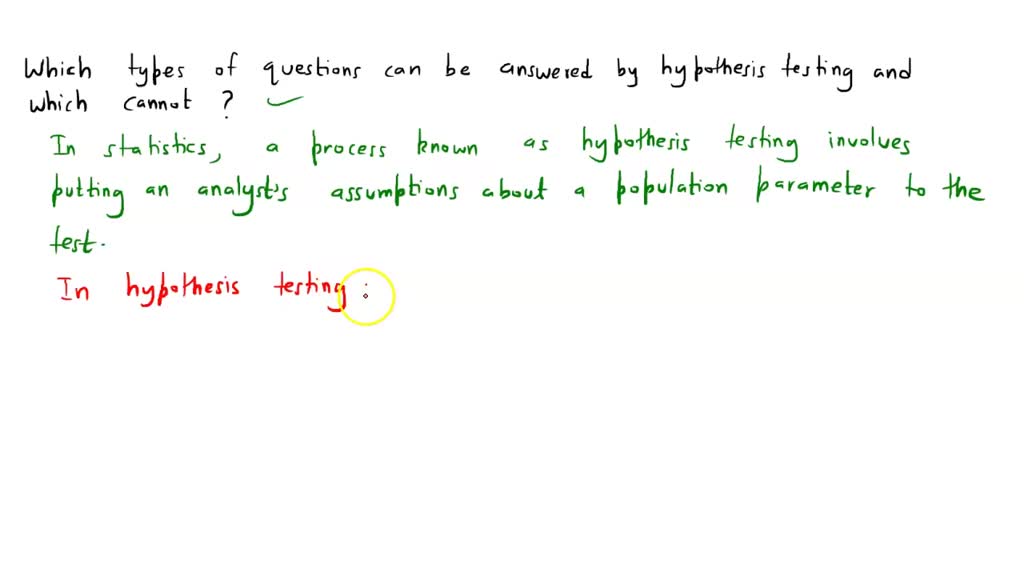 Which types of questions can be answered by hypothesis testing and
which cannot ?
In statistics, a process known as hypothesis testing involves
putting an analyst's assumptions about a population parameter to the
test.
In hypothesis testing :